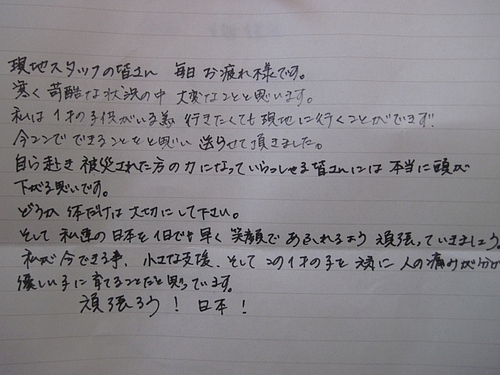 現地スタッフの皆さん 毎日お疲れ様です。
寒く苛酷な状況の中 大変なことと思います。
私は1才の子供がいる為 行きたくても現地に行くことができず
今ココでできることをと思い 送らせて頂きました。
自ら赴き 被災された方の力になっていらっしゃる皆さんには 本当に頭が
下がる思いです。
どうか 体だけは大切にして下さい。
そして 私達の日本を1日でも早く 笑顔であふれるよう 頑張っていきましょう。
私が今できる事、小さな支援、そしてこの1才の子を 共に人の痛みが分か
優しい子に育てることだと思っています。
頑張ろう！日本！